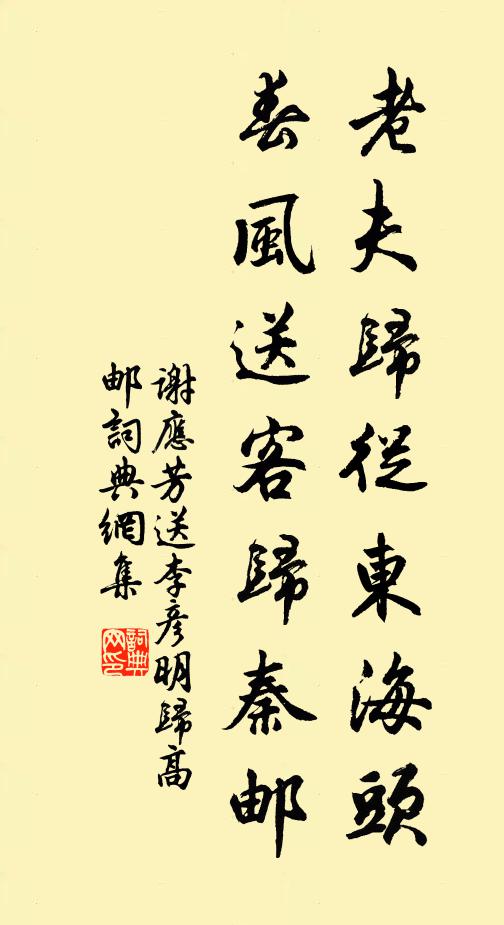 老夫歸從東海頭
春風送客歸秦邮
謝應芳送李彦明歸高
邮詞典網集
詞典网印